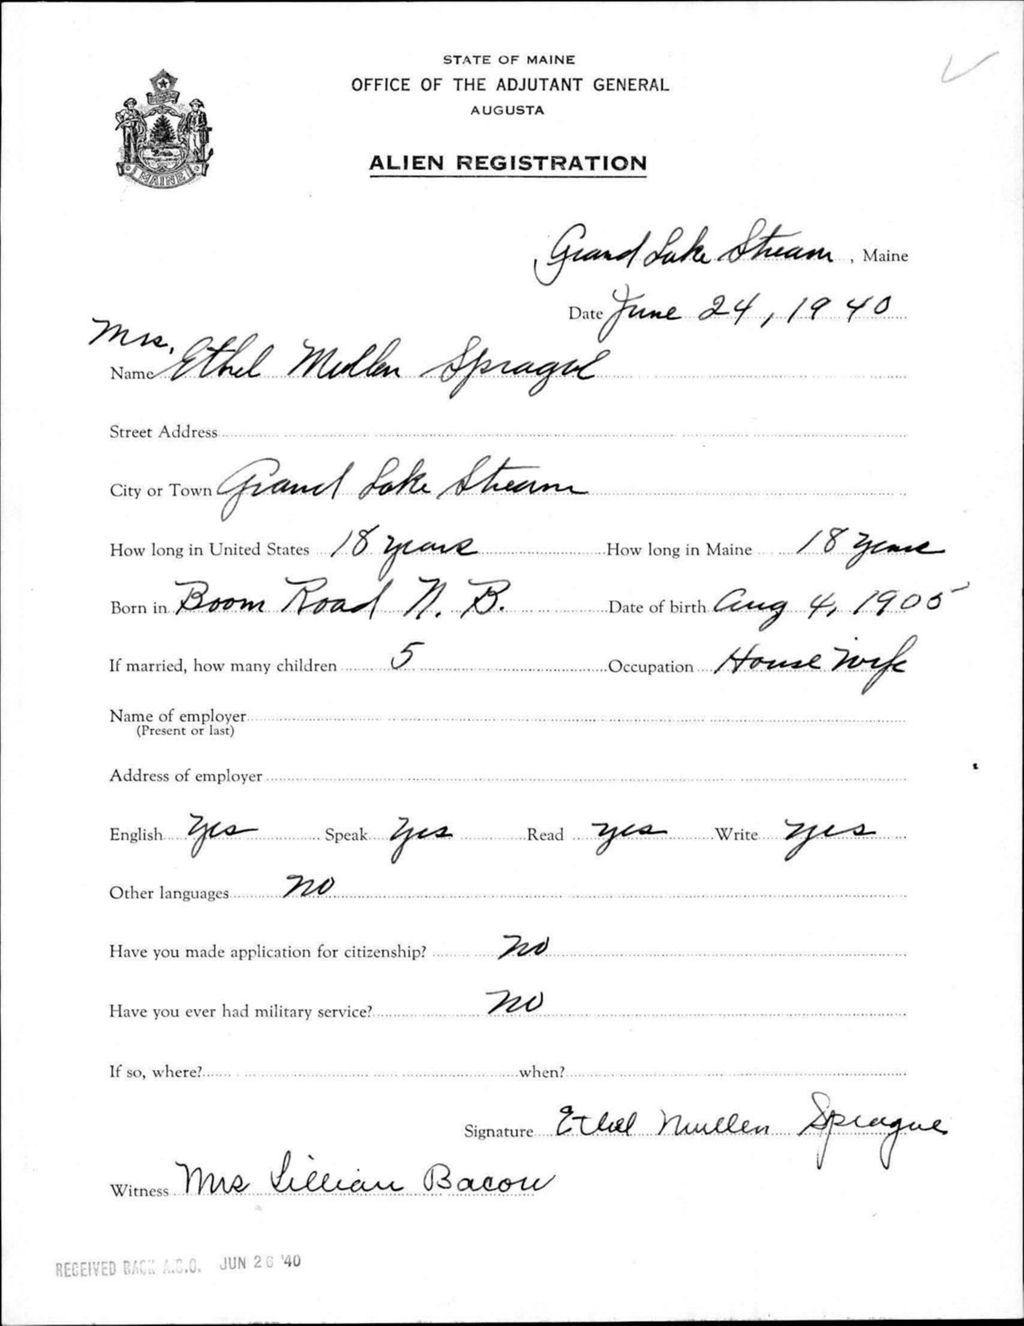 STATE OF MAINE
OFFICE OF THE ADJUTANT GENERAL
AUGUSTA
ALIEN REGISTRATION
MAINE
Grand Lake Stream, Maine
Date June 24, 1940
Mrs.
Name Ethel Mullen Sprague
Street Address
City or Town Grand Lake Stream
How long in United States 18 years How long in Maine 18 years
Born in Boom Road N. B. Date of birth Aug 4, 1905
If married, how many children 5 Occupation House Wife
Name of employer
(Present or last)
Address of employer
English Yes Speak Yes Read yes Write yes
Other languages no
Have you made application for citizenship? no
Have you ever had military service? no
If so, where? when?
Signature Ethel Mullen Sprague
Witness Mrs Lillian Bacon
RECEIVED BACK A.G.O. JUN 26 '40